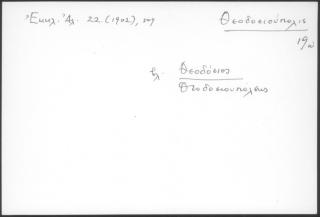 Ἐκκλ. Ἀλ. 22 (1902), 209
Θεοδοσιούπολις
19ος
βλ. Θεοδόσιος
Θεοδοσιουπόλεως